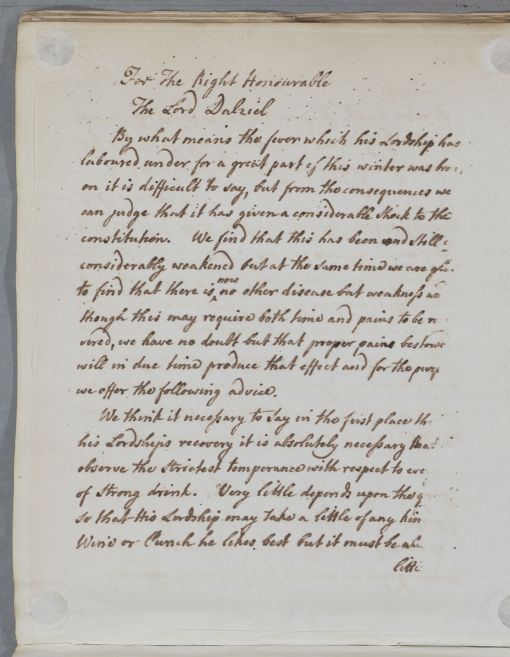 For The Right Honourable
The Lord Dalziel
By what means the fever which his Lordship has
laboured under for a great part of this winter was bro:
on it is difficult to say, but from the consequences we
can judge that it has given a considerable shock to the
constitution. We find that this has been and still
considerably weakened but at the same time we are gla
to find that there is now no other disease but weakness an
though this may require both time and pains to be r
vered, we have no doubt but that proper pains bestowe
will in due time produce that effect and for the purp
we offer the following advice.
We think it necessary to say in the first place th
his Lordships recovery it is absolutely necessary that
observe the strictest temperance with respect to eve
of strong drink. Very little depends upon the q
so that His Lordship may take a little of any kin
Wine or Punch he likes best but it must be alw
littl